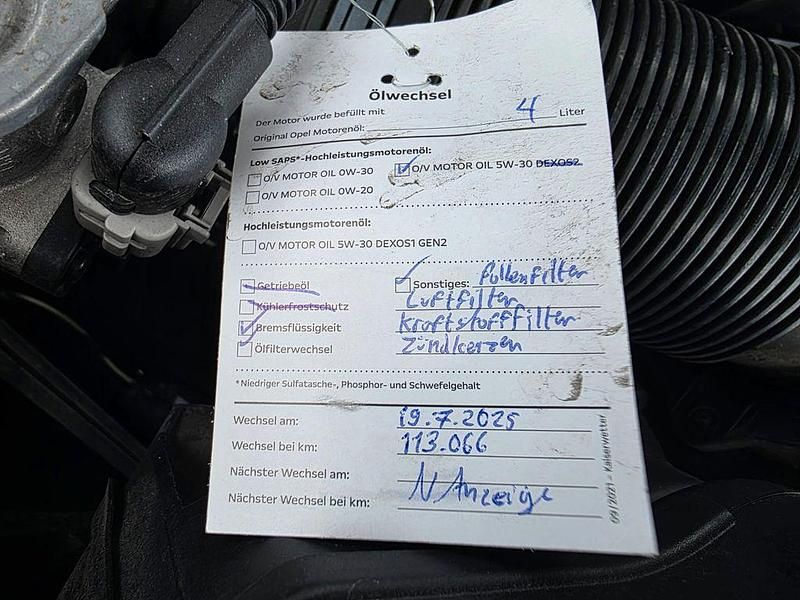 Ölwechsel
Der Motor wurde befüllt mit 4 Liter
Original Opel Motorenöl:
Low SAPS*-Hochleistungsmotorenöl:
O/V MOTOR OIL 0W-30 O/V MOTOR OIL 5W-30 DEXOS2
O/V MOTOR OIL 0W-20
Hochleistungsmotorenöl:
O/V MOTOR OIL 5W-30 DEXOS1 GEN2
Getriebeöl Sonstiges: Pollenfilter
Kühlerfrostschutz Luftfilter
Bremsflüssigkeit Kraftstofffilter
Ölfilterwechsel Zündkerzen
*Niedriger Sulfatasche-, Phosphor- und Schwefelgehalt
Wechsel am: 19.7.2025
Wechsel bei km: 113.066
Nächster Wechsel am:
Nächster Wechsel bei km: N Anzeige
09/2021 – Kaiserwetter